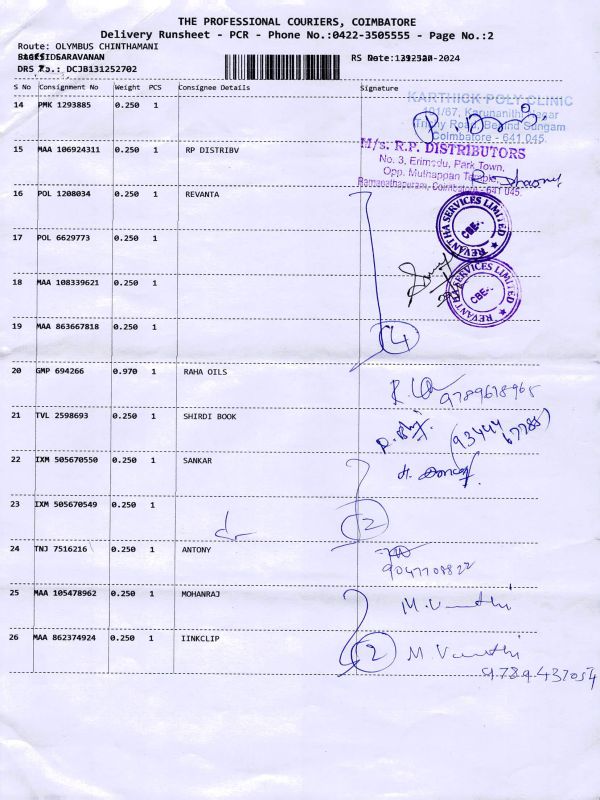 THE PROFESSIONAL COURIERS, COIMBATORE
Delivery Runsheet - PCR - Phone No.:0422-3505555 - Page No.:2
Route: OLYMBUS CHINTHAMANI
SARAVANAN
RS Date: -2024
DRS No.: DCJB131252702
S No Consignment No Weight PCS Consignee Details Signature
14 PMK 1293885 0.250 1
KARTHICK POLY CLINIC
101/67, Karunanithi Nagar
Trichy Road, Behind Sungam
Coimbatore - 641 045.
15 MAA 106924311 0.250 1 RP DISTRIBV
M/s. R.P. DISTRIBUTORS
No. 3, Erimedu, Park Town,
Opp. Muthappan Temple,
Ramanathapuram, Coimbatore - 641 045.
16 POL 1208034 0.250 1 REVANTA
REVANTHA SERVICES LIMITED
CBE-
17 POL 6629773 0.250 1
18 MAA 108339621 0.250 1
REVANTHA SERVICES LIMITED
CBE-
19 MAA 863667818 0.250 1
4
20 GMP 694266 0.970 1 RAHA OILS
9789678965
21 TVL 2598693 0.250 1 SHIRDI BOOK
(93444 67785)
22 IXM 505670550 0.250 1 SANKAR
23 IXM 505670549 0.250 1
2
24 TNJ 7516216 0.250 1 ANTONY
9047708822
25 MAA 105478962 0.250 1 MOHANRAJ
M. Vasanthi
26 MAA 862374924 0.250 1 IINKCLIP
2
M. Vasanthi